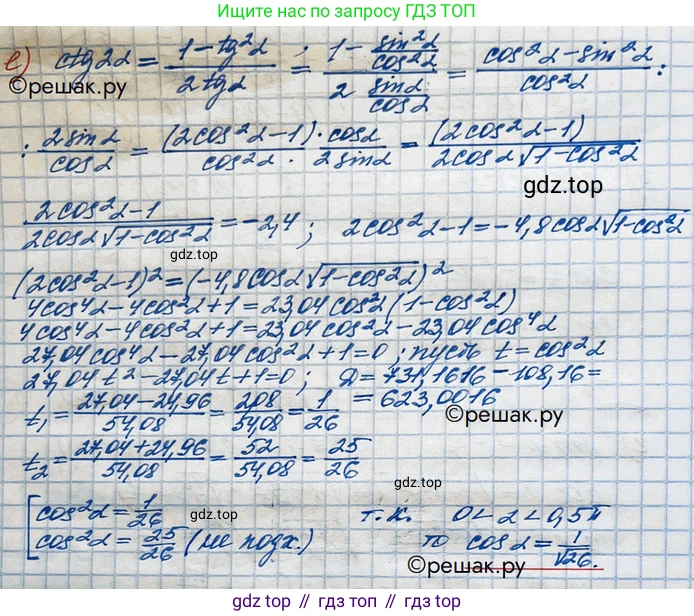 Больше решебников по запросу ГДЗ ТОП
е) ctg2α = (1 - tg²α)/(2tgα) = (1 - sin²α/cos²α)/(2 sinα/cosα) = (cos²α - sin²α)/cos²α :
©решак.ру
: 2sinα/cosα = (2cos²α - 1)/cos²α · cosα/2sinα = (2cos²α - 1)/(2cosα√(1-cos²α))
gdz.top
(2cos²α - 1)/(2cosα√(1-cos²α)) = -2,4 ; 2cos²α - 1 = -4,8cosα√(1-cos²α)
gdz.top
(2cos²α - 1)² = (-4,8cosα√(1-cos²α))²
4cos⁴α - 4cos²α + 1 = 23,04cos²α(1 - cos²α)
4cos⁴α - 4cos²α + 1 = 23,04cos²α - 23,04cos⁴α
27,04cos⁴α - 27,04cos²α + 1 = 0 ; пусть t = cos²α
27,04t² - 27,04t + 1 = 0 ; D = 731,1616 - 108,16 =
= 623,0016
t₁ = (27,04 - 24,96)/54,08 = 2,08/54,08 = 1/26
©решак.ру
t₂ = (27,04 + 24,96)/54,08 = 52/54,08 = 25/26
gdz.top
[ cos²α = 1/26 т.к. 0 < α < 0,5π
gdz.top
cos²α = 25/26 (не подх.) то cosα = 1/√26.
©решак.ру
gdz.top // гдз.топ // gdz.top // гдз.топ